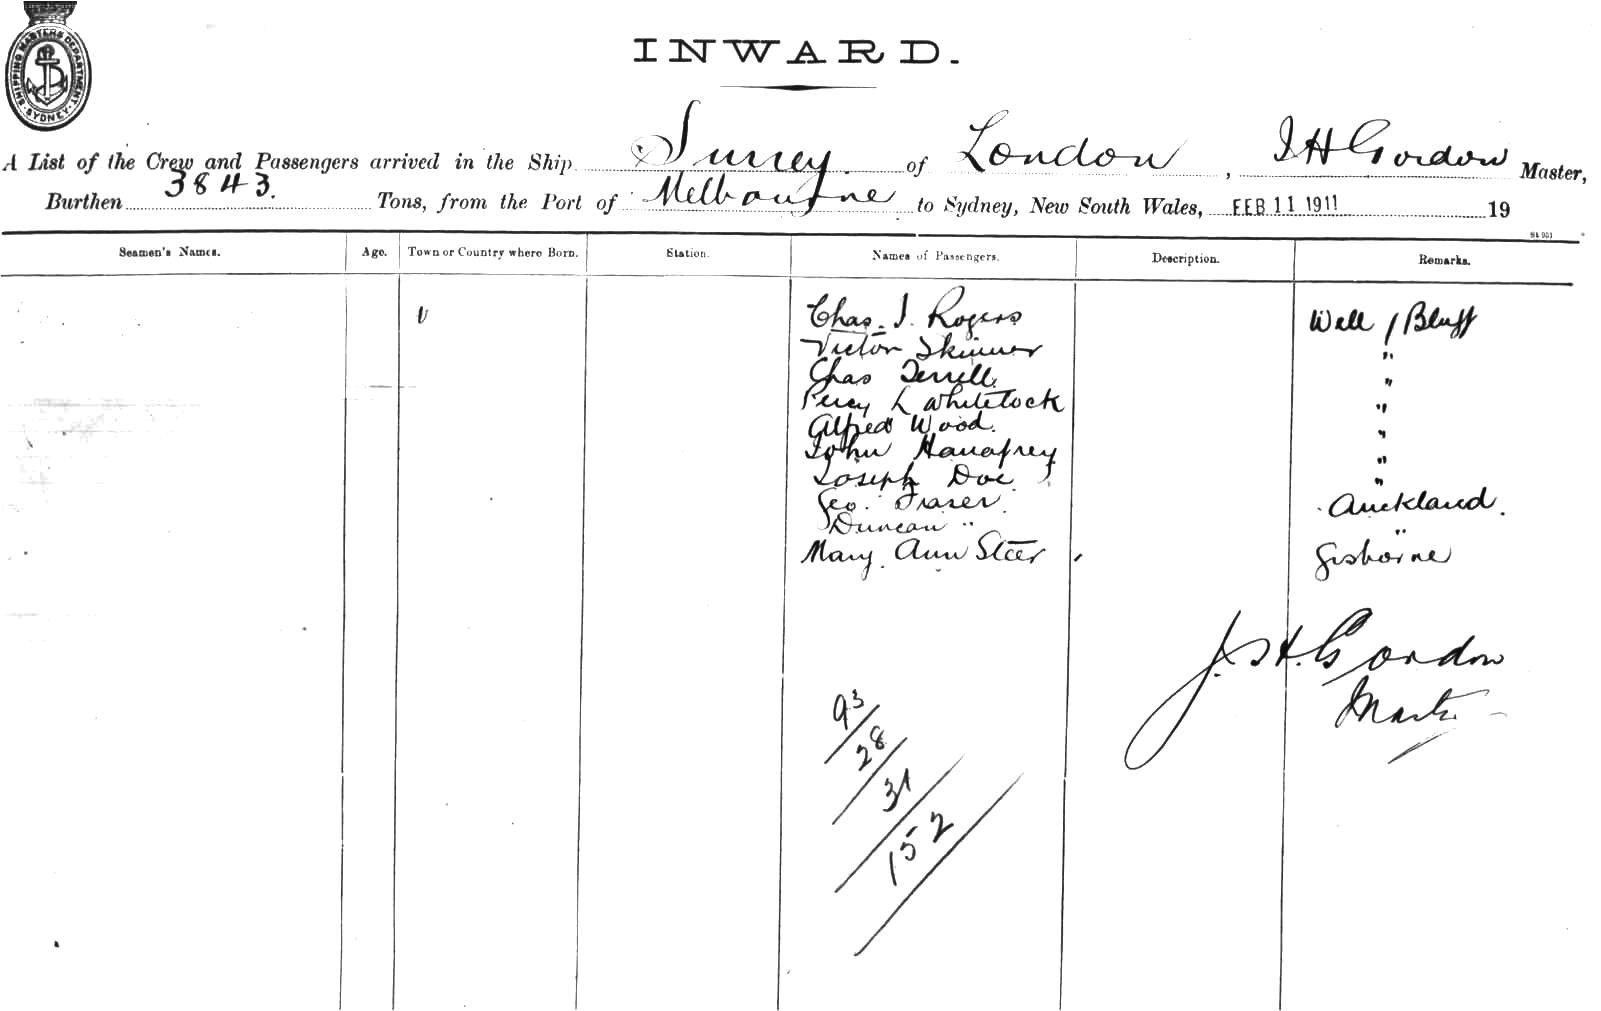 SHIPPING MASTERS DEPARTMENT. SYDNEY
INWARD.
A List of the Crew and Passengers arrived in the Ship Surrey of London, J H Gordon Master,
Burthen 3843. Tons, from the Port of Melbourne to Sydney, New South Wales, FEB 11 1911 19
Seamen's Names. Age. Town or Country where Born. Station. Names of Passengers. Description. Remarks.
Chas. J. Rogers Well / Bluff
Victor Skinner "
Chas Terrell "
Percy L Whitelock "
Alfred Wood. "
John "
Joseph Doe "
Geo. Fraser. Auckland.
Duncan " "
Mary Ann Steer Gisborne
J. H. Gordon
Master
93
28
31
152